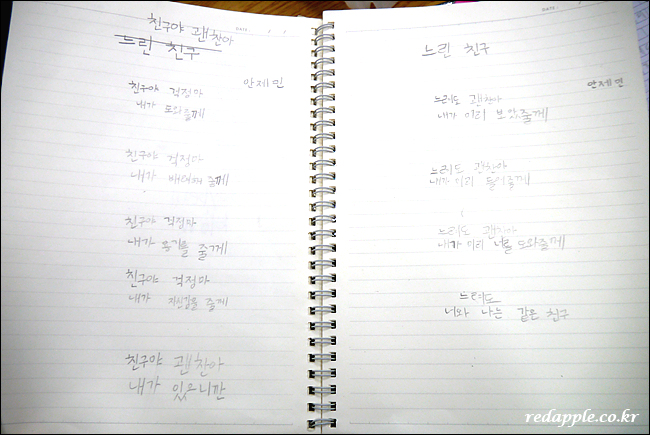 친구야 괜찮아
느린 친구
안제민
친구야 걱정마
내가 도와줄께
친구야 걱정마
내가 배려해 줄께
친구야 걱정마
내가 용기를 줄께
친구야 걱정마
내가 자신감을 줄께
친구야 괜찮아
내가 있으니깐
DATE
느린 친구
안제민
느려도 괜찮아
내가 미리 보아줄께
느려도 괜찮아
내가 미리 들어줄께
느려도 괜찮아
내가 미리 너를 도와줄께
느려도
너와 나는 같은 친구
redapple.co.kr